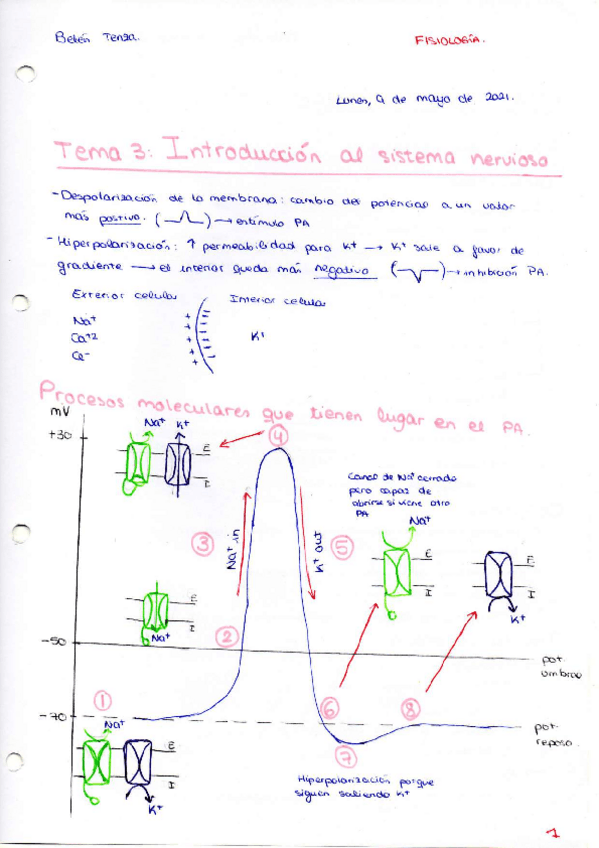 Belén Tenza.
FISIOLOGÍA.
Lunes, 9 de mayo de 2021.
Tema 3: Introducción al sistema nervioso
- Despolarización de la membrana: cambio del potencial a un valor
más positivo. ( ) → estímulo PA
- Hiperpolarización: ↑ permeabilidad para K+ → K+ sale a favor de
gradiente → el interior queda más negativo ( ) → inhibición PA.
Exterior celular
Interior celular
Na+
Ca+2
Cl-
K+
Procesos moleculares que tienen lugar en el PA.
mV
+30
Na+ K+
E
I
4
Canal de Na+ cerrado
pero capaz de
abrirse si viene otro
PA
Na+
3
Na+ in
K+ out
5
E
I
E
I
K+
E
I
Na+
2
-50
pot.
umbral
1
-70
Na+
6
8
pot.
reposo.
7
E
I
K+
Hiperpolarización porque
siguen saliendo K+
1